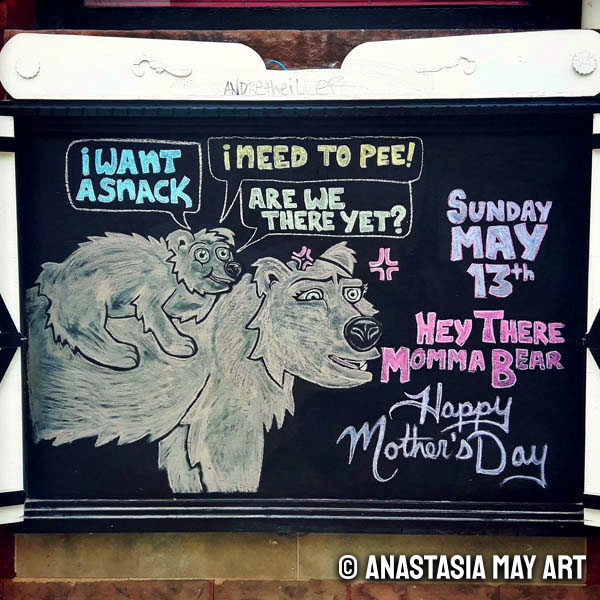 i WANT
A SNACK
i NEED TO PEE!
ARE WE
THERE YET?
SUNDAY
MAY
13th
HEY THERE
MOMMA BEAR
Happy
Mother's Day
© ANASTASIA MAY ART